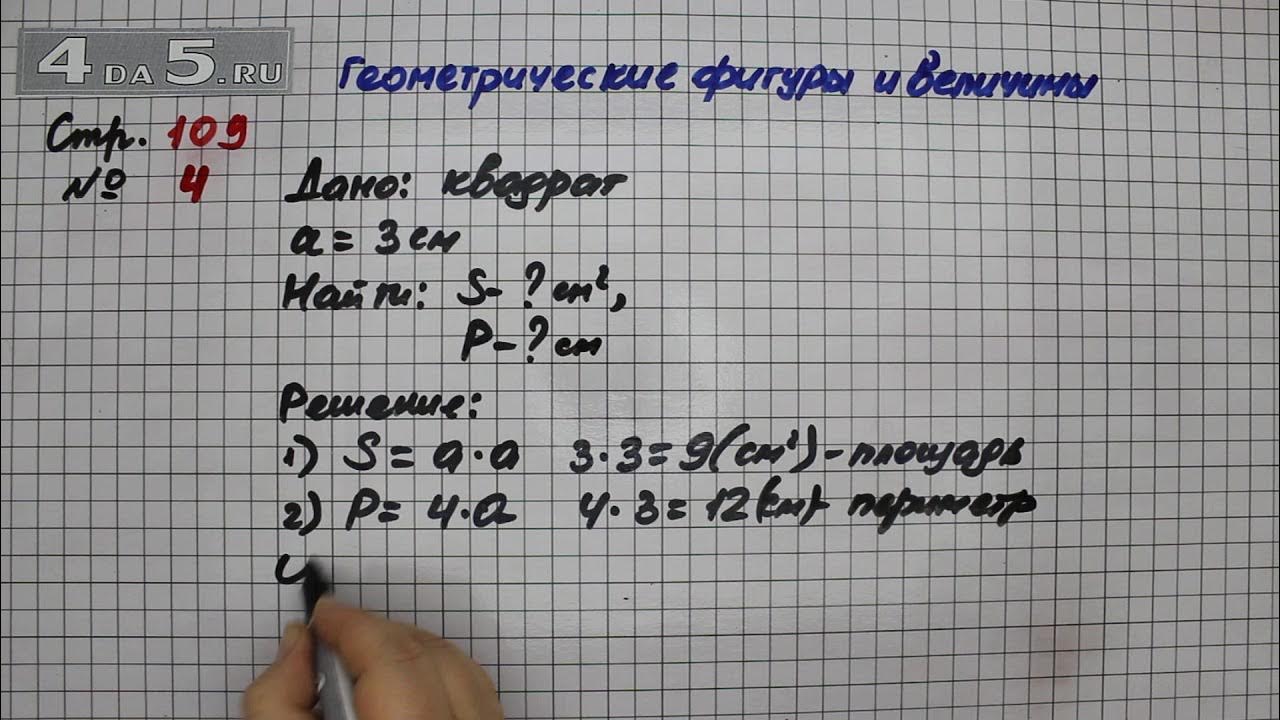 4DA5.RU
Геометрические фигуры и величины
Стр. 109
№ 4
Дано: квадрат
a = 3 см
Найти: S - ? см²,
P - ? см
Решение:
1) S = a · a 3 · 3 = 9 (см²) - площадь
2) P = 4 · a 4 · 3 = 12 (см) - периметр